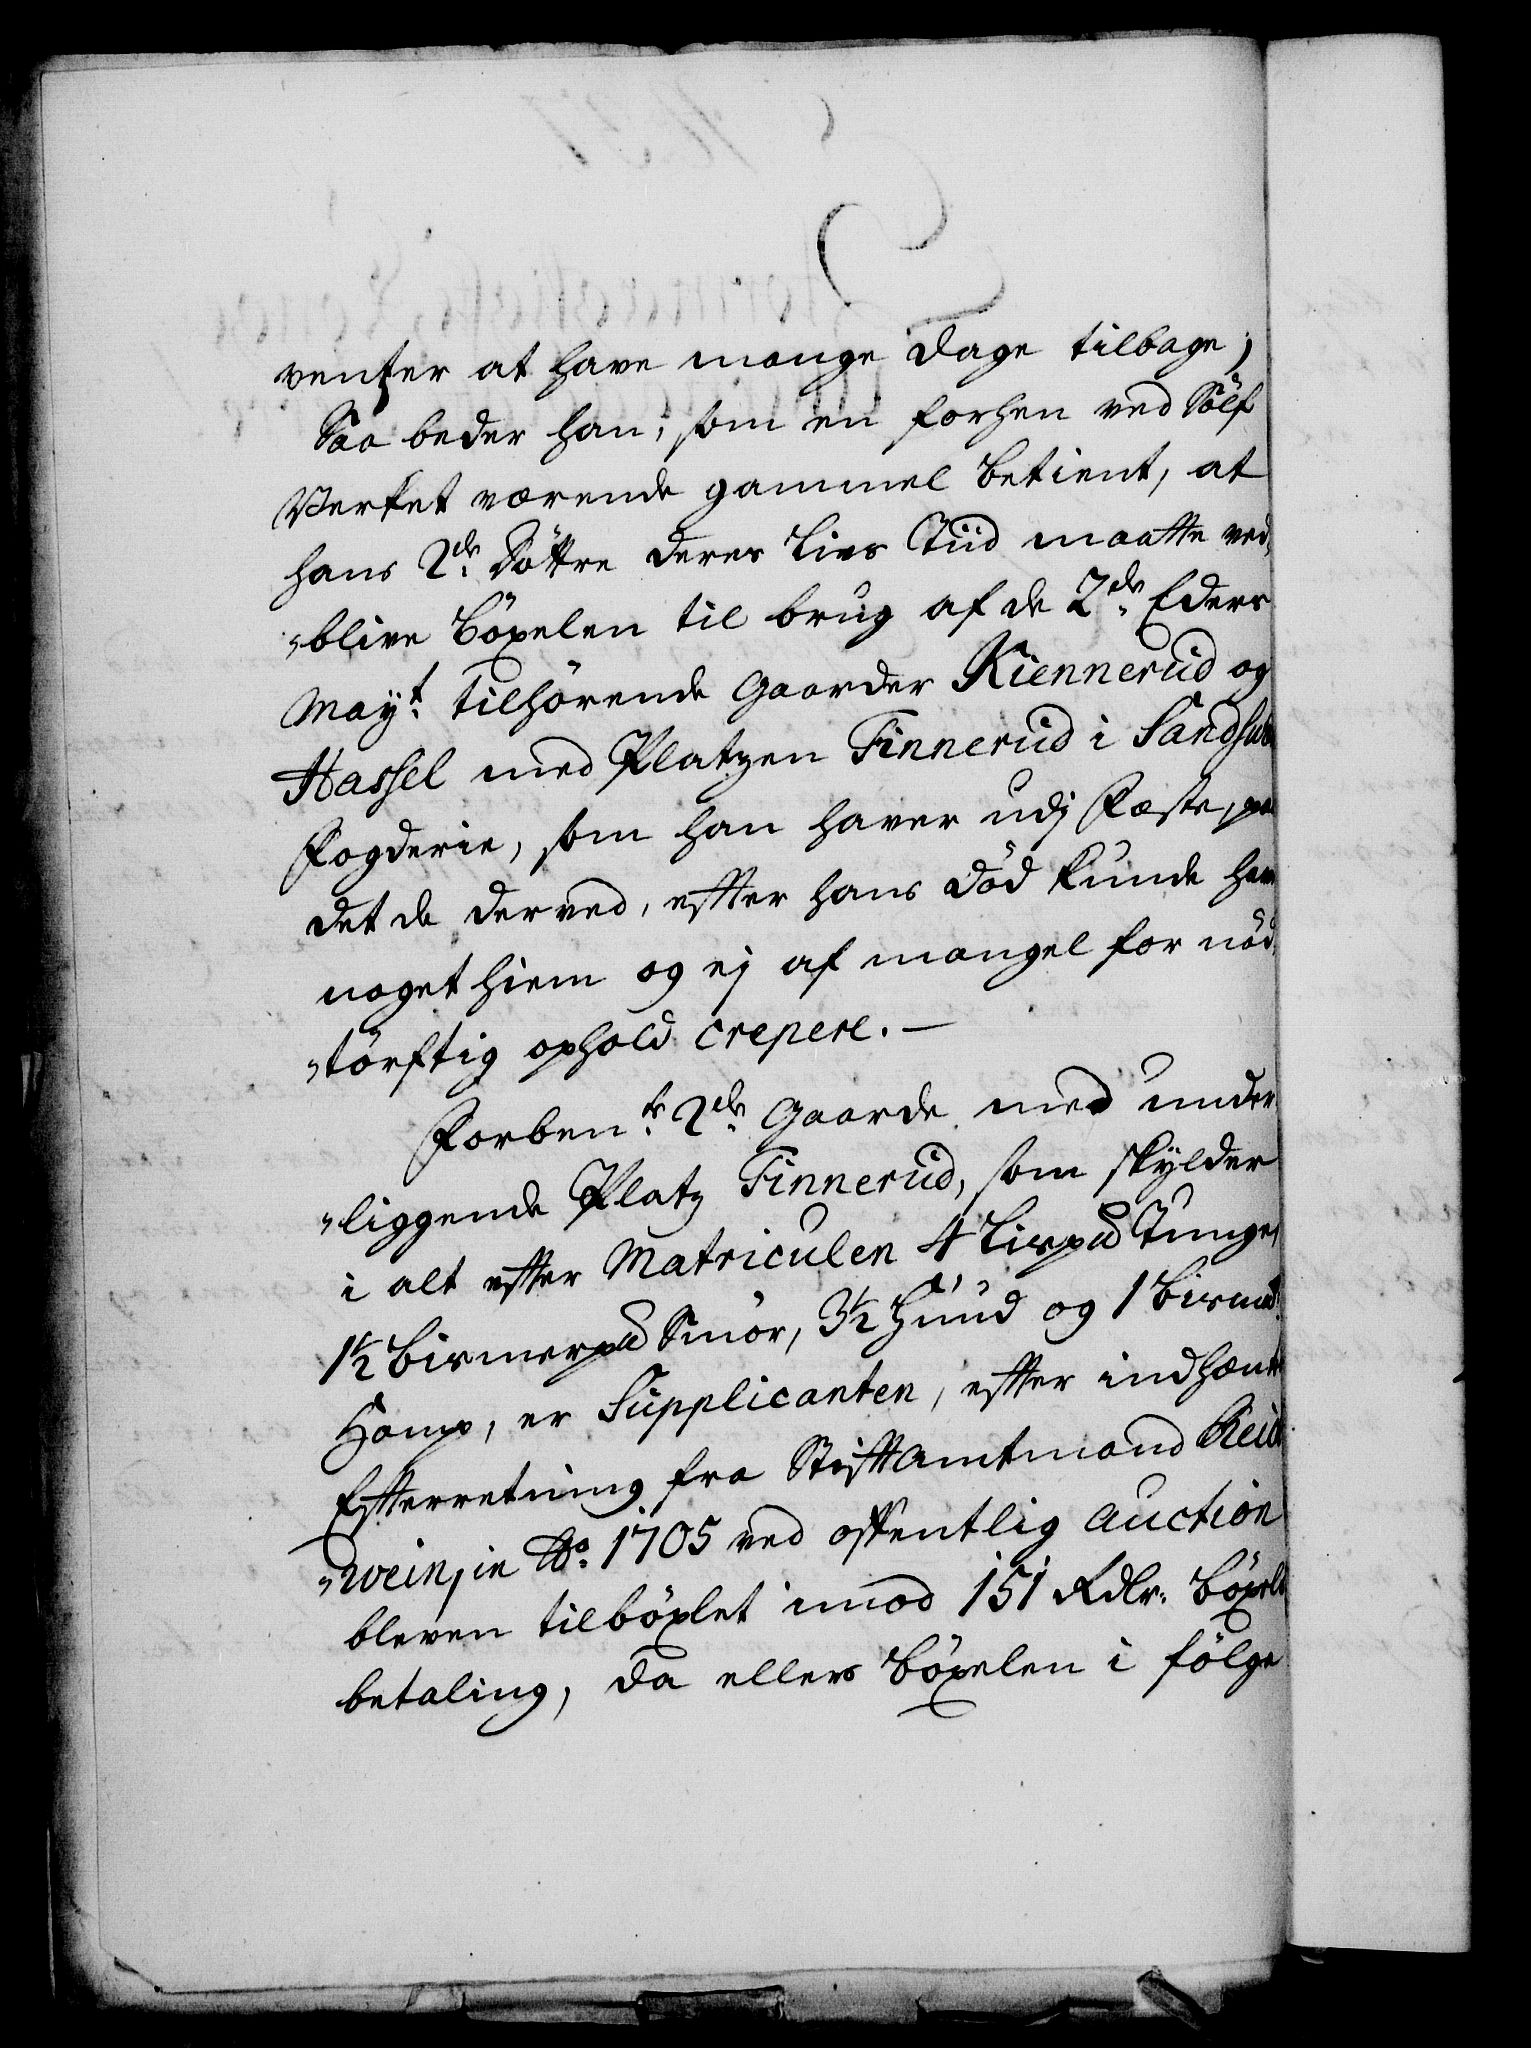 venter at have mange Dage tilbage;
Saa beder han, som en forhen ved Sölf
Verket værende gammel betient, at
hans 2de Döttre deres Livs Tiid maatte ved-
-blive böxelen til brug af de 2de Eders
Mayt. tilhörende Gaarder Kiennerud og
Hassel med Platzen Finnerud i Sandsver
Fogderie, som han haver udj Fæste, paa
det de derved, efter hans Död kunde have
noget hiem og ej af mangel for nöd-
-törftig ophold crepere. —
Forbente. 2de Gaarde med under-
-liggende Platz Finnerud, som skylder
i alt efter Matriculen 4 Lispd Tunge,
1½ Bismerpd Smör, 3½ Huud og 1 Bismd.
Hamp, er Supplicanten, efter indhænt
Efterretning fra Stiftamtmand Reich
-wein, in Ao. 1705 ved offentlig Auction
bleven tilböxlet imod 151 Rdlr. böxels
betaling, da ellers böxelen i fölge